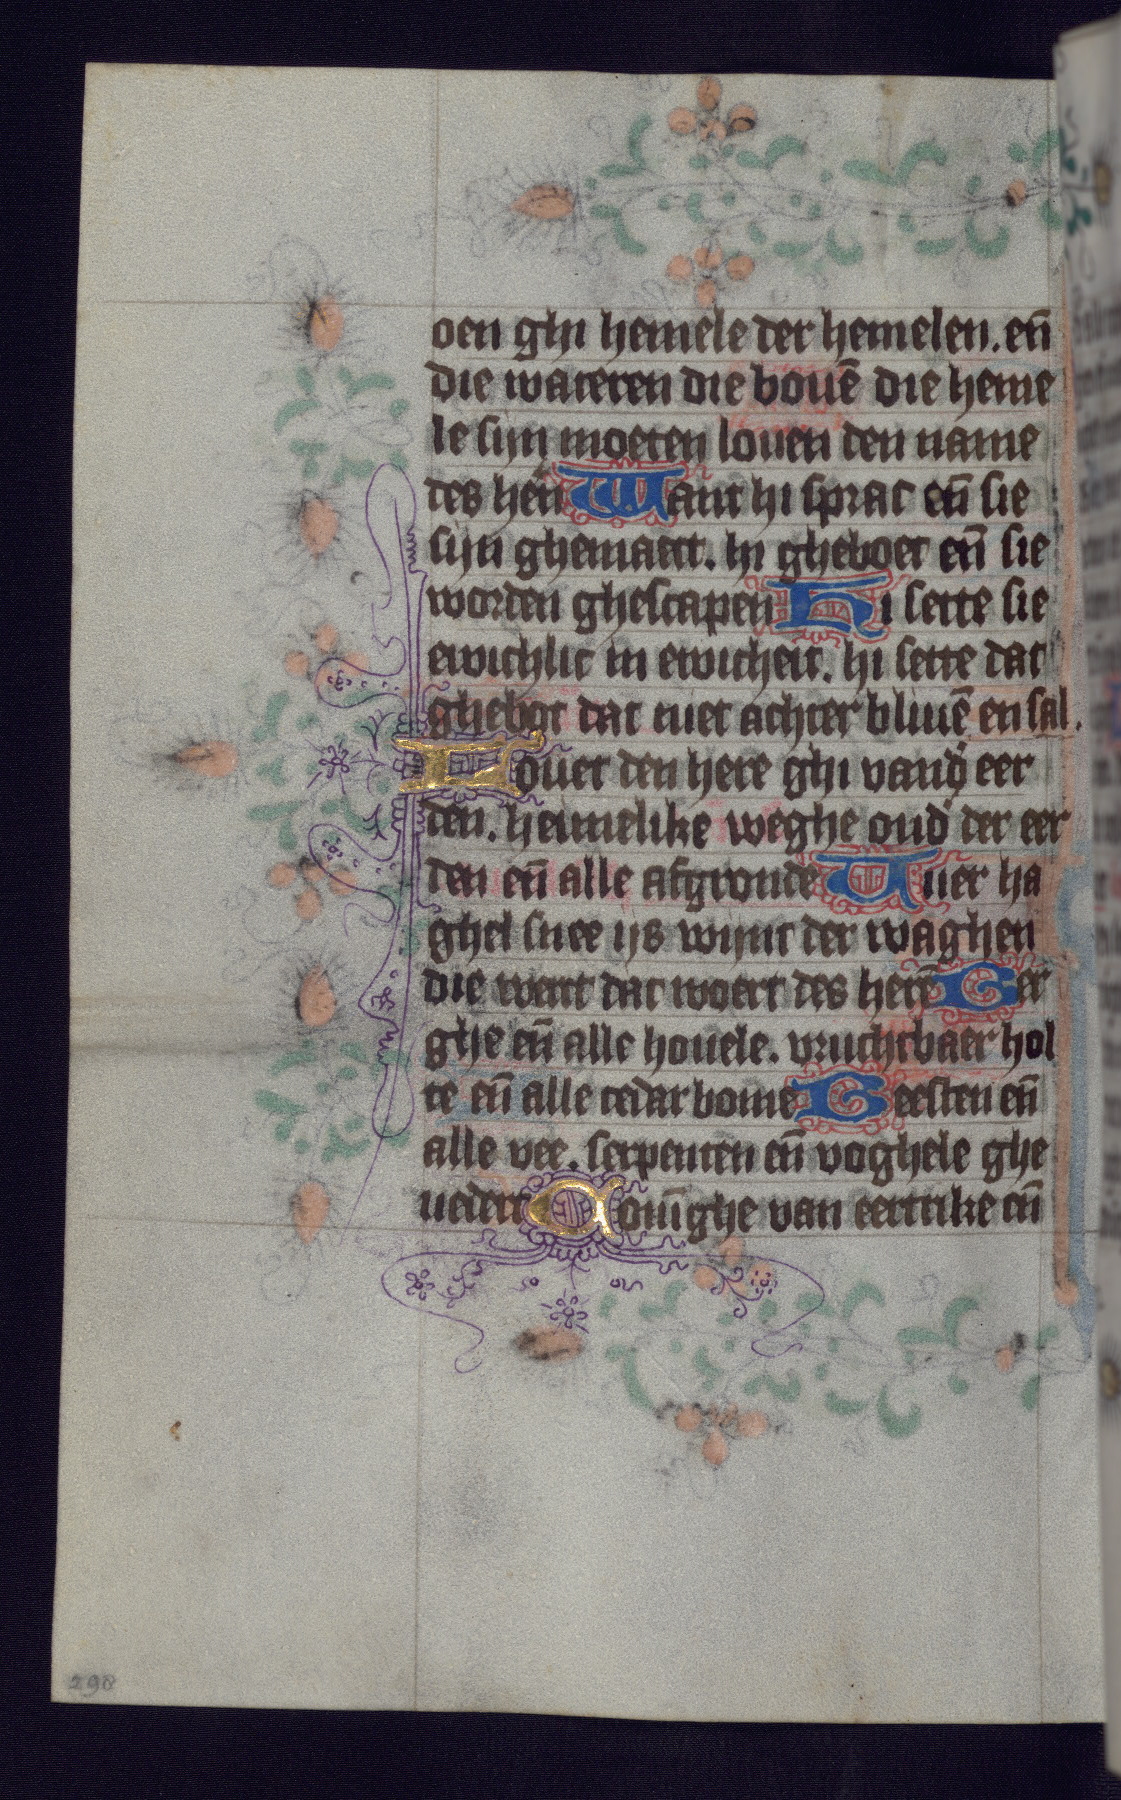 oen ghi hemele der hemelen. en̄
die wateren die bouē die heme
le sijn moeten louen den name
des hēn Want hi sprac en̄ sie
sijn ghemaect. hi gheboet en̄ sie
worden ghescapen Hi sette sie
ewichlic in ewicheit. hi sette dat
ghebot dat niet achter bliuē en sal.
Louet den here ghi vand̓ eer
den. heimelike weghe ond̓ der eer
den en̄ alle afgronde Vuer ha
ghel snee ijs wijnt der waghen
die wect dat woert des herē Ber
ghe en̄ alle houele. vruchtbaer hol
te en̄ alle cedar bome Beesten en̄
alle vee. serpenten en̄ voghele ghe
uedert Conīghe van eertrike en̄
298